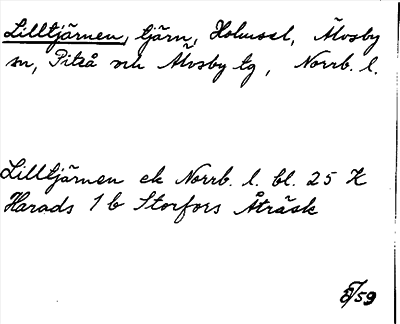 Lilltjärnen, tjärn, Holmsel, Älvsby
sn, Piteå och Älvsby tg, Norrb. l.
Lilltjärnen ek Norrb. l. bl. 25 K
Harads 1 b Storfors Åträsk
/59